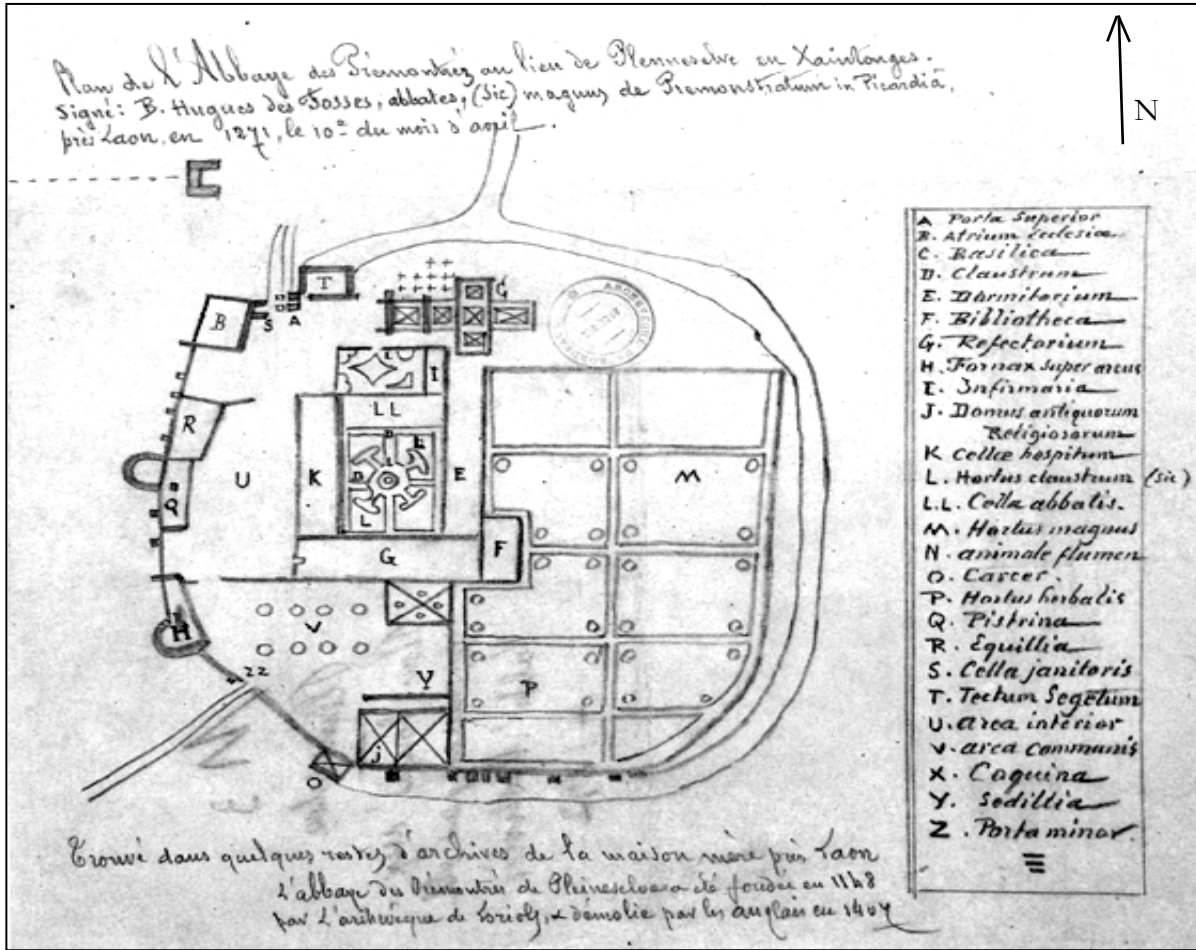 Plan de l'Abbaye des Prémontrez au lieu de Plenneselve en Xaintonges.
Signé: B. Hugues des Fosses, abbates, (Sic) magnus de Premonstratum in Picardiâ,
près Laon, en 1271, le 10e du mois d'avril.
N
A Porta Superior
B. Atrium ecclesiæ
C. Basilica
D. Claustrum
E. Dormitorium
F. Bibliotheca
G. Refectorium
H. Fornax super arcus
I. Infirmaria
J. Domus antiquorum
Religiosorum
K Cellæ hospitum
L. Hortus claustrum (Sic)
L.L. Cella abbatis.
M. Hortus magnus
N. animale flumen
O. Carcer.
P. Hortus herbalis
Q. Pistrina
R. Equillia
S. Cella janitoris
T. Tectum Segetum
U. area interior
V. area communis
X. Coquina
Y. Sedillia
Z. Porta minor
T
C
B
S
A
I
LL
R
U
K
D
L
D
L
E
M
Q
G
F
H
V
ZZ
Y
P
j
O
Trouvé dans quelques restes d'archives de la maison mère près Laon
L'abbaye des Prémontrés de Pleineselve a été fondée en 1148
par L'archevêque de & démolie par les anglais en 1407